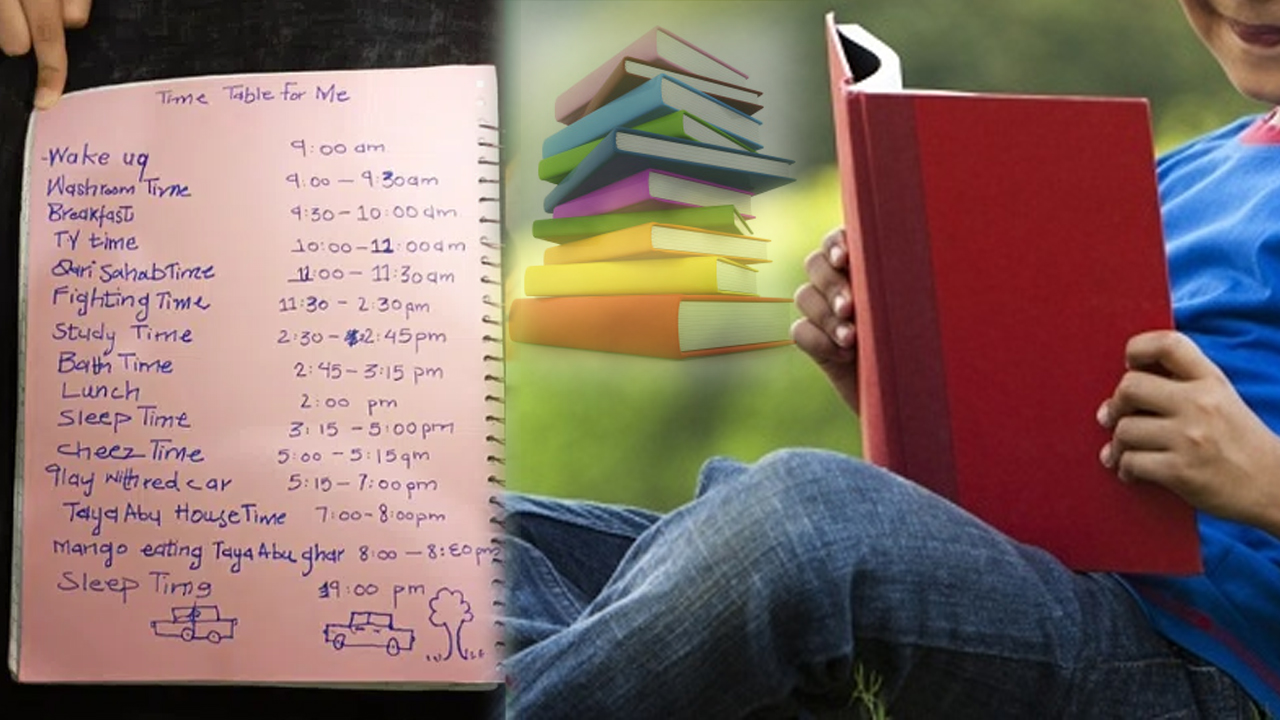 Time Table for Me
Wake up 9:00 am
Washroom Time 9:00 – 9:30am
Breakfast 9:30 – 10:00 am
TV time 10:00 – 11:00am
Qari Sahab Time 11:00 – 11:30am
Fighting Time 11:30 – 2:30pm
Study Time 2:30 – 2:45pm
Bath Time 2:45 – 3:15 pm
Lunch 2:00 pm
Sleep Time 3:15 – 5:00pm
Cheez Time 5:00 – 5:15am
Play with red car 5:15 – 7:00pm
Taya Abu House Time 7:00-8:00pm
Mango eating Taya Abu ghar 8:00 – pm
Sleep Time 9:00 pm